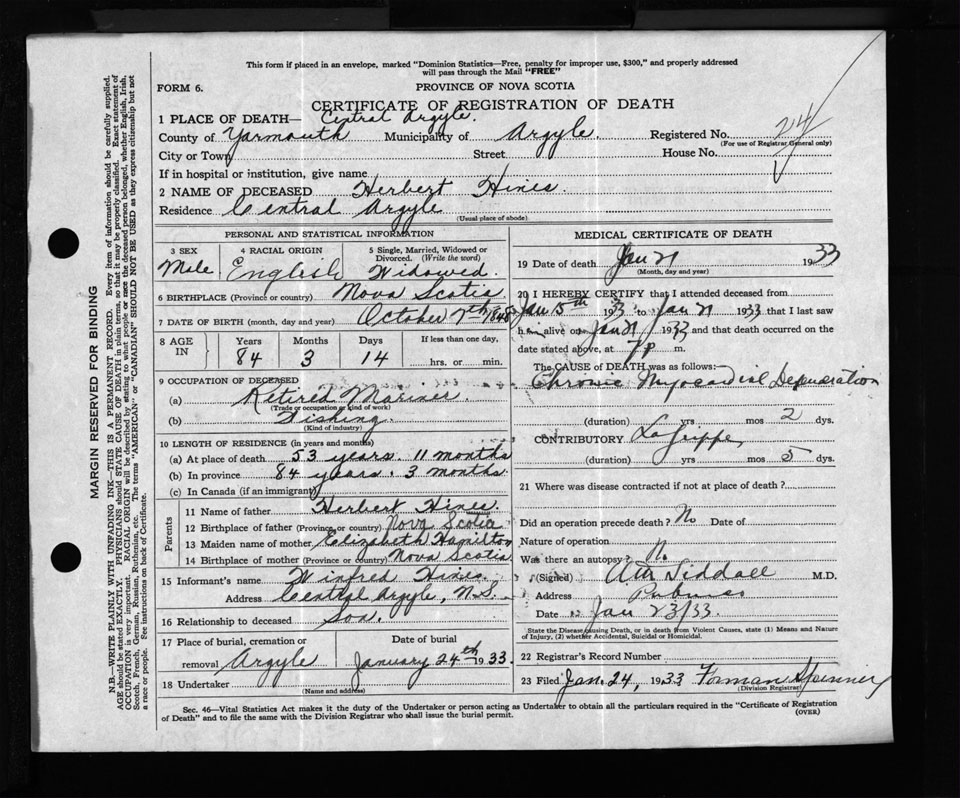 This form if placed in an envelope, marked "Dominion Statistics—Free, penalty for improper use, $300," and properly addressed
will pass through the Mail "FREE"
FORM 6.
PROVINCE OF NOVA SCOTIA
CERTIFICATE OF REGISTRATION OF DEATH
1 PLACE OF DEATH— Central Argyle.
County of Yarmouth Municipality of Argyle. Registered No. 24
(For use of Registrar General only)
City or Town Street House No.
If in hospital or institution, give name
2 NAME OF DECEASED Herbert Hines.
Residence Central Argyle
(Usual place of abode)
PERSONAL AND STATISTICAL INFORMATION
3 SEX 4 RACIAL ORIGIN 5 Single, Married, Widowed or
Divorced. (Write the word)
Male English Widowed.
6 BIRTHPLACE (Province or country) Nova Scotia
7 DATE OF BIRTH (month, day and year) October 7th 1848
8 AGE IN Years Months Days If less than one day,
84 3 14 hrs. or min.
9 OCCUPATION OF DECEASED
(a) Retired Mariner.
(Trade or occupation or kind of work)
(b) Fishing.
(Kind of industry)
10 LENGTH OF RESIDENCE (in years and months)
(a) At place of death 53 years. 11 months
(b) In province 84 years. 3 months.
(c) In Canada (if an immigrant)
Parents
11 Name of father Herbert Hines.
12 Birthplace of father (Province or country) Nova Scotia
13 Maiden name of mother Elizabeth Hamilton
14 Birthplace of mother (Province or country) Nova Scotia
15 Informant's name Winfred Hines.
Address Central Argyle, N.S.
16 Relationship to deceased Son.
17 Place of burial, cremation or Date of burial
removal Argyle January 24th 1933.
18 Undertaker
(Name and address)
MEDICAL CERTIFICATE OF DEATH
19 Date of death Jan 21 1933
(Month, day and year)
20 I HEREBY CERTIFY that I attended deceased from
Jan 15th 1933 to Jan 21 1933 that I last saw
him alive on Jan 21 1933 and that death occurred on the
date stated above, at 7 p m.
The CAUSE of DEATH was as follows:
Chronic Myocardial Degeneration
(duration) yrs mos 2 dys.
CONTRIBUTORY La Grippe
(duration) yrs mos 5 dys.
21 Where was disease contracted if not at place of death?
Did an operation precede death? No Date of
Nature of operation
Was there an autopsy? N.
(Signed) Siddall M.D.
Address Pubnico
Date Jan 23/33.
State the Disease causing Death, or in death from Violent Causes, state (1) Means and Nature
of Injury, (2) whether Accidental, Suicidal or Homicidal.
22 Registrar's Record Number
23 Filed Jan. 24, 1933 Forman Spinney
(Division Registrar)
Sec. 46—Vital Statistics Act makes it the duty of the Undertaker or person acting as Undertaker to obtain all the particulars required in the "Certificate of Registration
of Death" and to file the same with the Division Registrar who shall issue the burial permit.
(OVER)
MARGIN RESERVED FOR BINDING
N.B.—WRITE PLAINLY WITH UNFADING INK—THIS IS A PERMANENT RECORD. Every item of information should be carefully supplied.
AGE should be stated EXACTLY. PHYSICIANS should STATE CAUSE OF DEATH in plain terms, so that it may be properly classified. Exact statement of
OCCUPATION is very important. RACIAL ORIGIN will be described by stating to what people or race the deceased person belonged, whether English, Irish,
Scotch, French, German, Russian, Ruthenian, etc. The terms "AMERICAN" or "CANADIAN" SHOULD NOT BE USED as they express citizenship but not
a race or people. See instructions on back of Certificate.